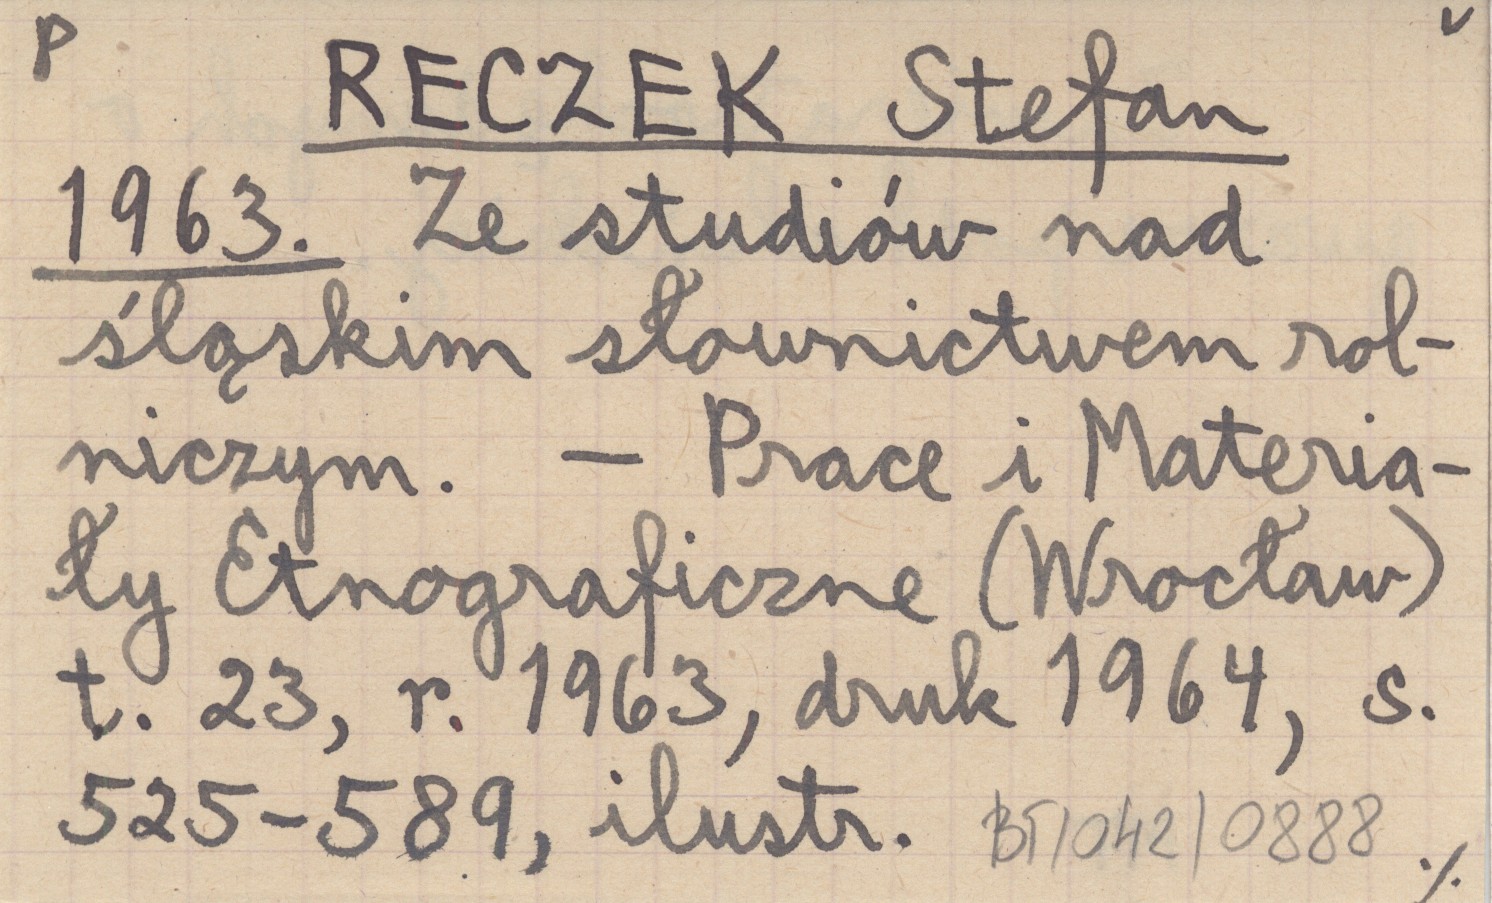 P v
RECZEK Stefan
1963. Ze studiów nad
śląskim słownictwem rol-
niczym. — Prace i Materia-
ły Etnograficzne (Wrocław)
t. 23, r. 1963, druk 1964, s.
525-589, ilustr. BT/042/0888
./.